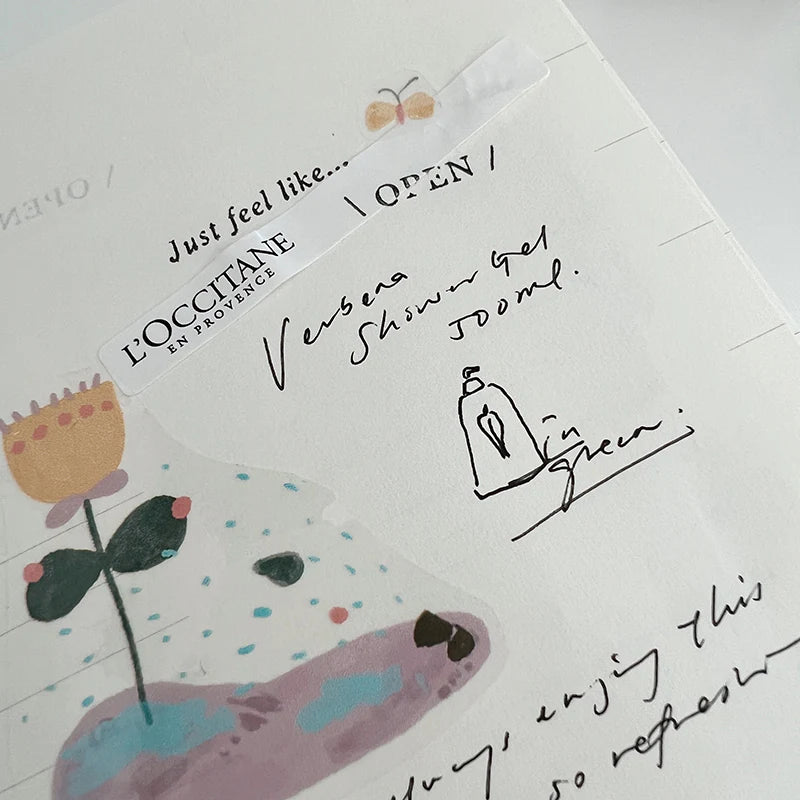 Just feel like...
\ OPEN /
L'OCCITANE
EN PROVENCE
Verbena
Shower Gel
500ml.
in
green.
always enjoy this
so refreshi
\ OPEN